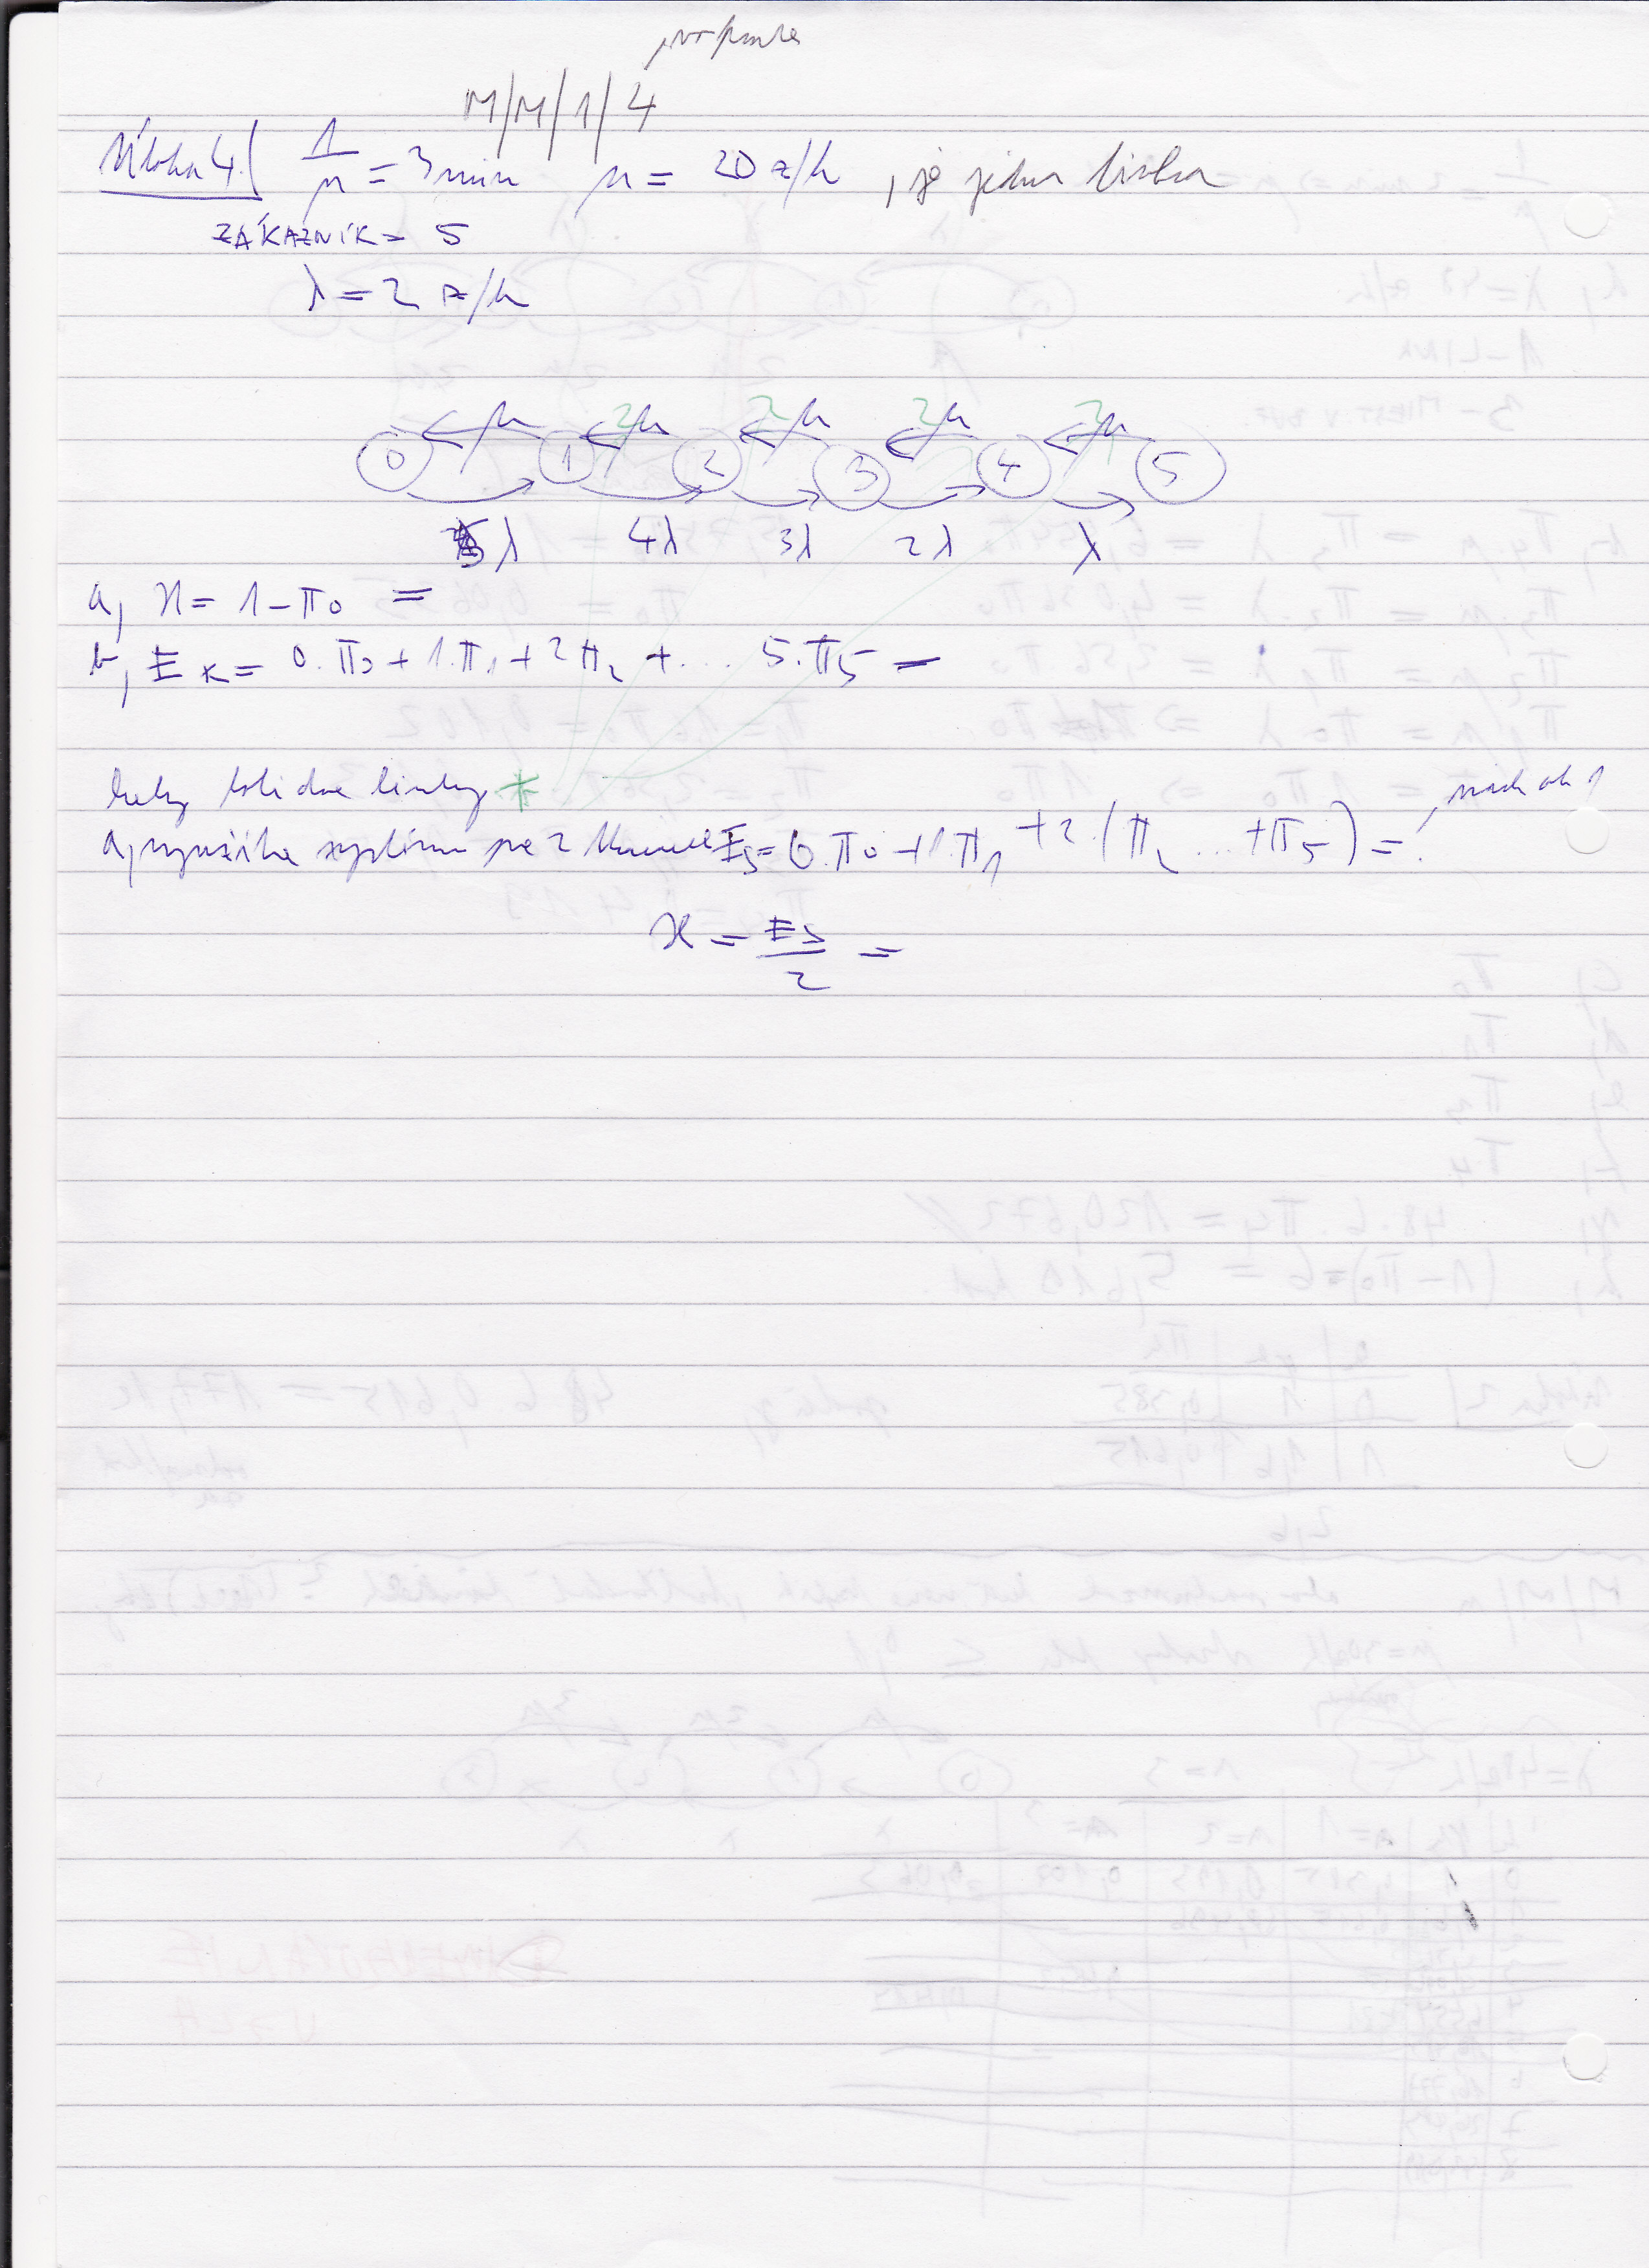 M/M/1/4
Úloha 4. 1/μ = 3 min μ = 20 z/h , je jedna linka
ZÁKAZNÍK = 5
λ = 2 z/h
μ 2μ 2μ 2μ 2μ
0 1 2 3 4 5
5λ 4λ 3λ 2λ λ
a, ϰ = 1 - π0 =
b, EK = 0.π0 + 1.π1 + 2π2 + ... 5.π5 =
keby boli dve linky *
a, využitie systému pre 2 ES = 0.π0 + 1.π1 + 2.(π2 ... + π5) =
ϰ = ES/2 =